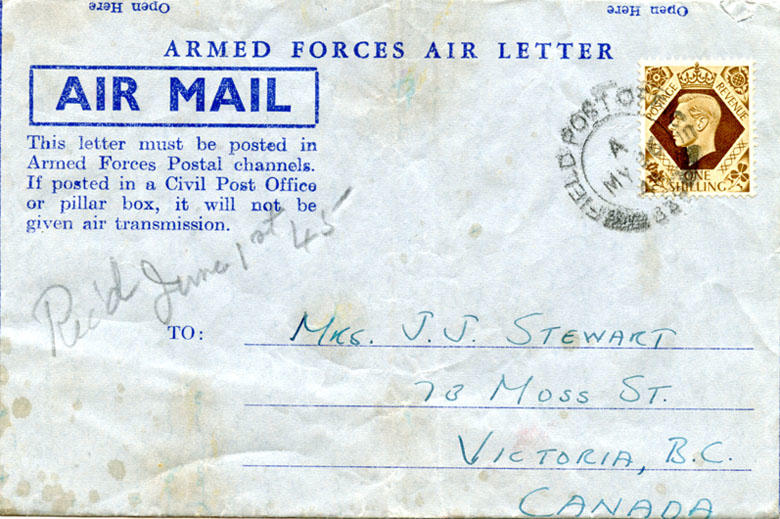 Open Here
Open Here
ARMED FORCES AIR LETTER
AIR MAIL
This letter must be posted in
Armed Forces Postal channels.
If posted in a Civil Post Office
or pillar box, it will not be
given air transmission.
POSTAGE REVENUE
ONE
SHILLING
FIELD POST
A
MY
Rec'd June 1st 45
TO: MRS. J.J. STEWART
73 MOSS ST.
VICTORIA, B.C.
CANADA